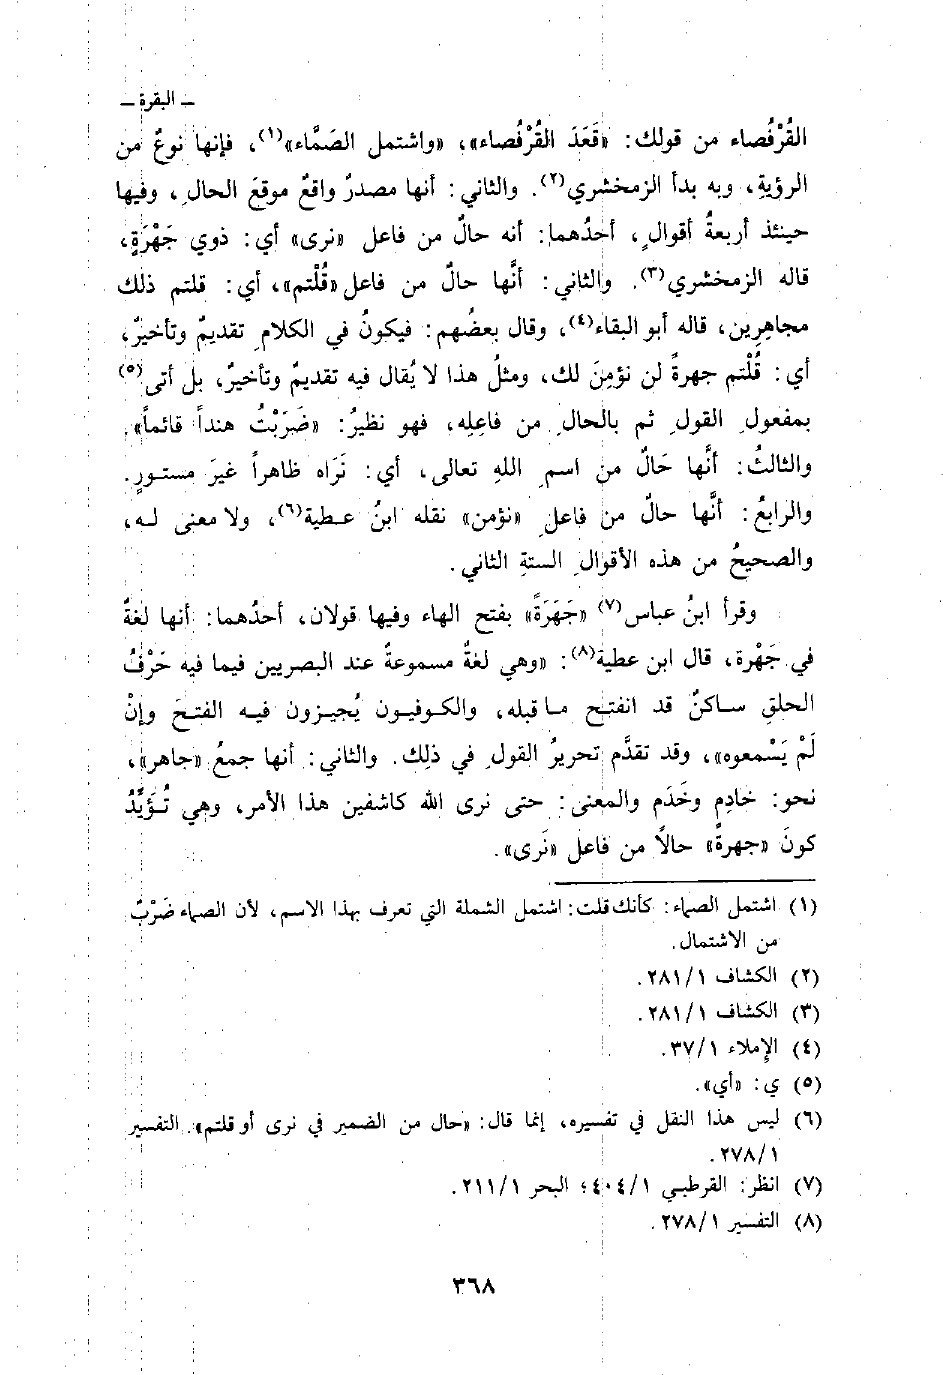 ـ البقرة ـ
القُرْفُصاء من قولك: «قَعَدَ القُرْفُصاء»، «واشتمل الصَمَّاء»(١)، فإنها نوعٌ من
الرؤيةِ، وبه بدأ الزمخشري(٢). والثاني: أنها مصدرٌ واقعٌ موقعَ الحالِ، وفيها
حينئذ أربعةُ أقوالٍ، أحدُهما: أنه حالٌ من فاعل «نرى» أي: ذوي جَهْرَةٍ،
قاله الزمخشري(٣). والثاني: أنَّها حالٌ من فاعل «قُلْتم»، أي: قلتم ذلك
مجاهِرِين، قاله أبو البقاء(٤)، وقال بعضُهم: فيكونُ في الكلامِ تقديمٌ وتأخيرٌ،
أي: قُلْتم جهرةً لن نؤمِنَ لك، ومثلُ هذا لا يُقال فيه تقديمٌ وتأخيرٌ، بل أتى(٥)
بمفعولِ القولِ ثم بالحالِ من فاعِلِه، فهو نظيرُ: «ضَرَبْتُ هنداً قائماً»،
والثالثُ: أنَّها حَالٌ من اسمِ اللهِ تعالى، أي: نَرَاه ظاهراً غيرَ مستورٍ.
والرابعُ: أنَّها حالٌ من فاعلِ «نؤمن» نقله ابنُ عطية(٦)، ولا معنى له،
والصحيحُ من هذه الأقوالِ الستةِ الثاني.
وقرأ ابنُ عباس(٧) «جَهَرَةً» بفتح الهاء وفيها قولان، أحدُهما: أنها لغةٌ
في جَهْرة، قال ابن عطية(٨): «وهي لغةٌ مسموعةٌ عند البصريين فيما فيه حَرْفُ
الحلقِ ساكنٌ قد انفتح ما قبله، والكوفيون يُجيزون فيه الفتحَ وإنْ
لَمْ يَسْمعوه»، وقد تقدَّم تحريرُ القولِ في ذلِك. والثاني: أنها جمعُ «جاهر»،
نحو: خادِم وخَدَم والمعنى: حتى نرى الله كاشفين هذا الأمر، وهي تُؤَيِّدُ
كونَ «جهرةً» حالاً من فاعل «نَرى».
(١) اشتمل الصماء: كأنك قلت: اشتمل الشملة التي تعرف بهذا الاسم، لأن الصماء ضَرْبٌ
من الاشتمال.
(٢) الكشاف ٢٨١/١.
(٣) الكشاف ٢٨١/١.
(٤) الإملاء ٣٧/١.
(٥) ي: «أي».
(٦) ليس هذا النقل في تفسيره، إنما قال: «حال من الضمير في نرى أو قلتم». التفسير
٢٧٨/١.
(٧) انظر: القرطبي ٤٠٤/١؛ البحر ٢١١/١.
(٨) التفسير ٢٧٨/١.
٣٦٨